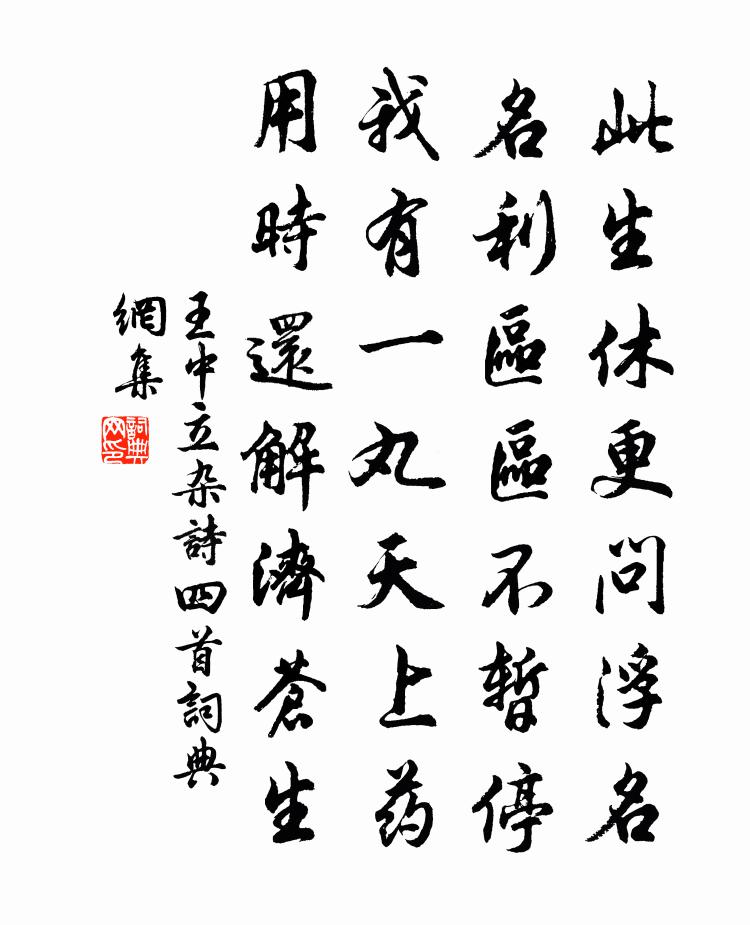 此生休更问浮名
名利區區不暫停
我有一丸天上药
用時還解濟蒼生
王中立杂詩四首詞典
網集
詞典
网印